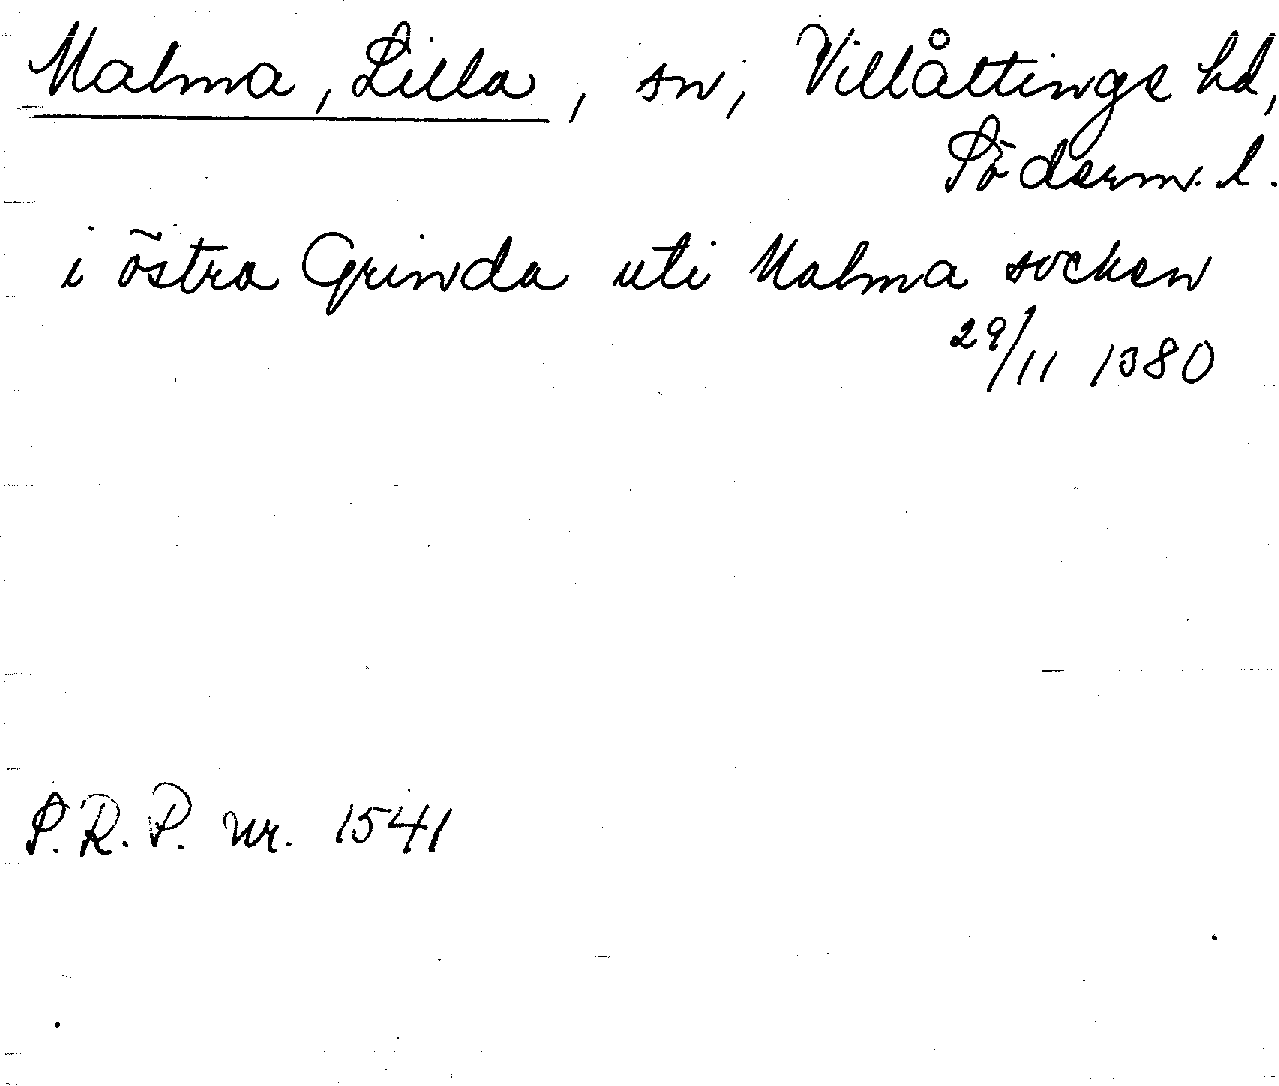 Malma, Lilla, sn, Villåttinge hd,
Söderm. l.
i östra Grinda uti Malma socken
29/11 1380
S.R.P. nr. 1541